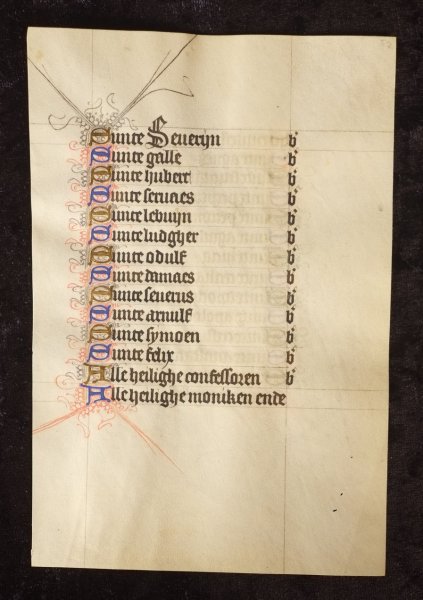 Sunte Seueryn b'
Sunte galle b'
Sunte hubert b'
Sunte seruaes b'
Sunte lebuyn b'
Sunte ludgher b'
Sunte odulf b'
Sunte damaes b'
Sunte seuerus b'
Sunte arnulf b'
Sunte symoen b'
Sunte felix b'
Alle heilighe confessoren b'
Alle heilighe moniken ende